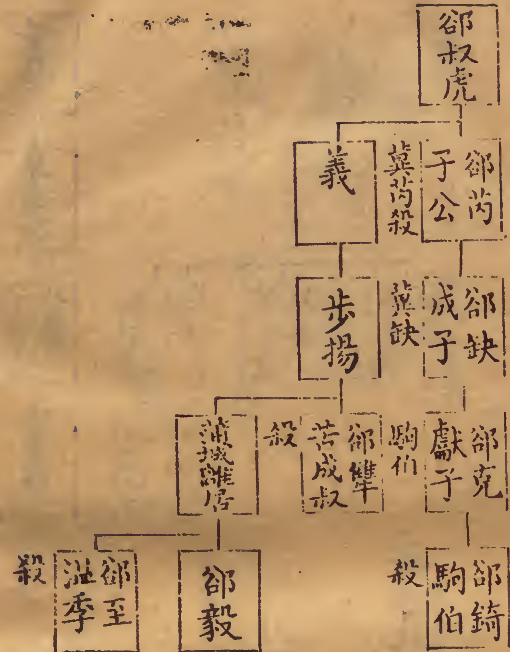 郤叔虎
郤芮
子公
冀芮殺
義
郤缺
成子
冀缺
步揚
郤克
獻子
駒伯
郤犨
苦成叔
殺
蒲城鵲居
郤錡
駒伯
殺
郤毅
郤至
溫季
殺